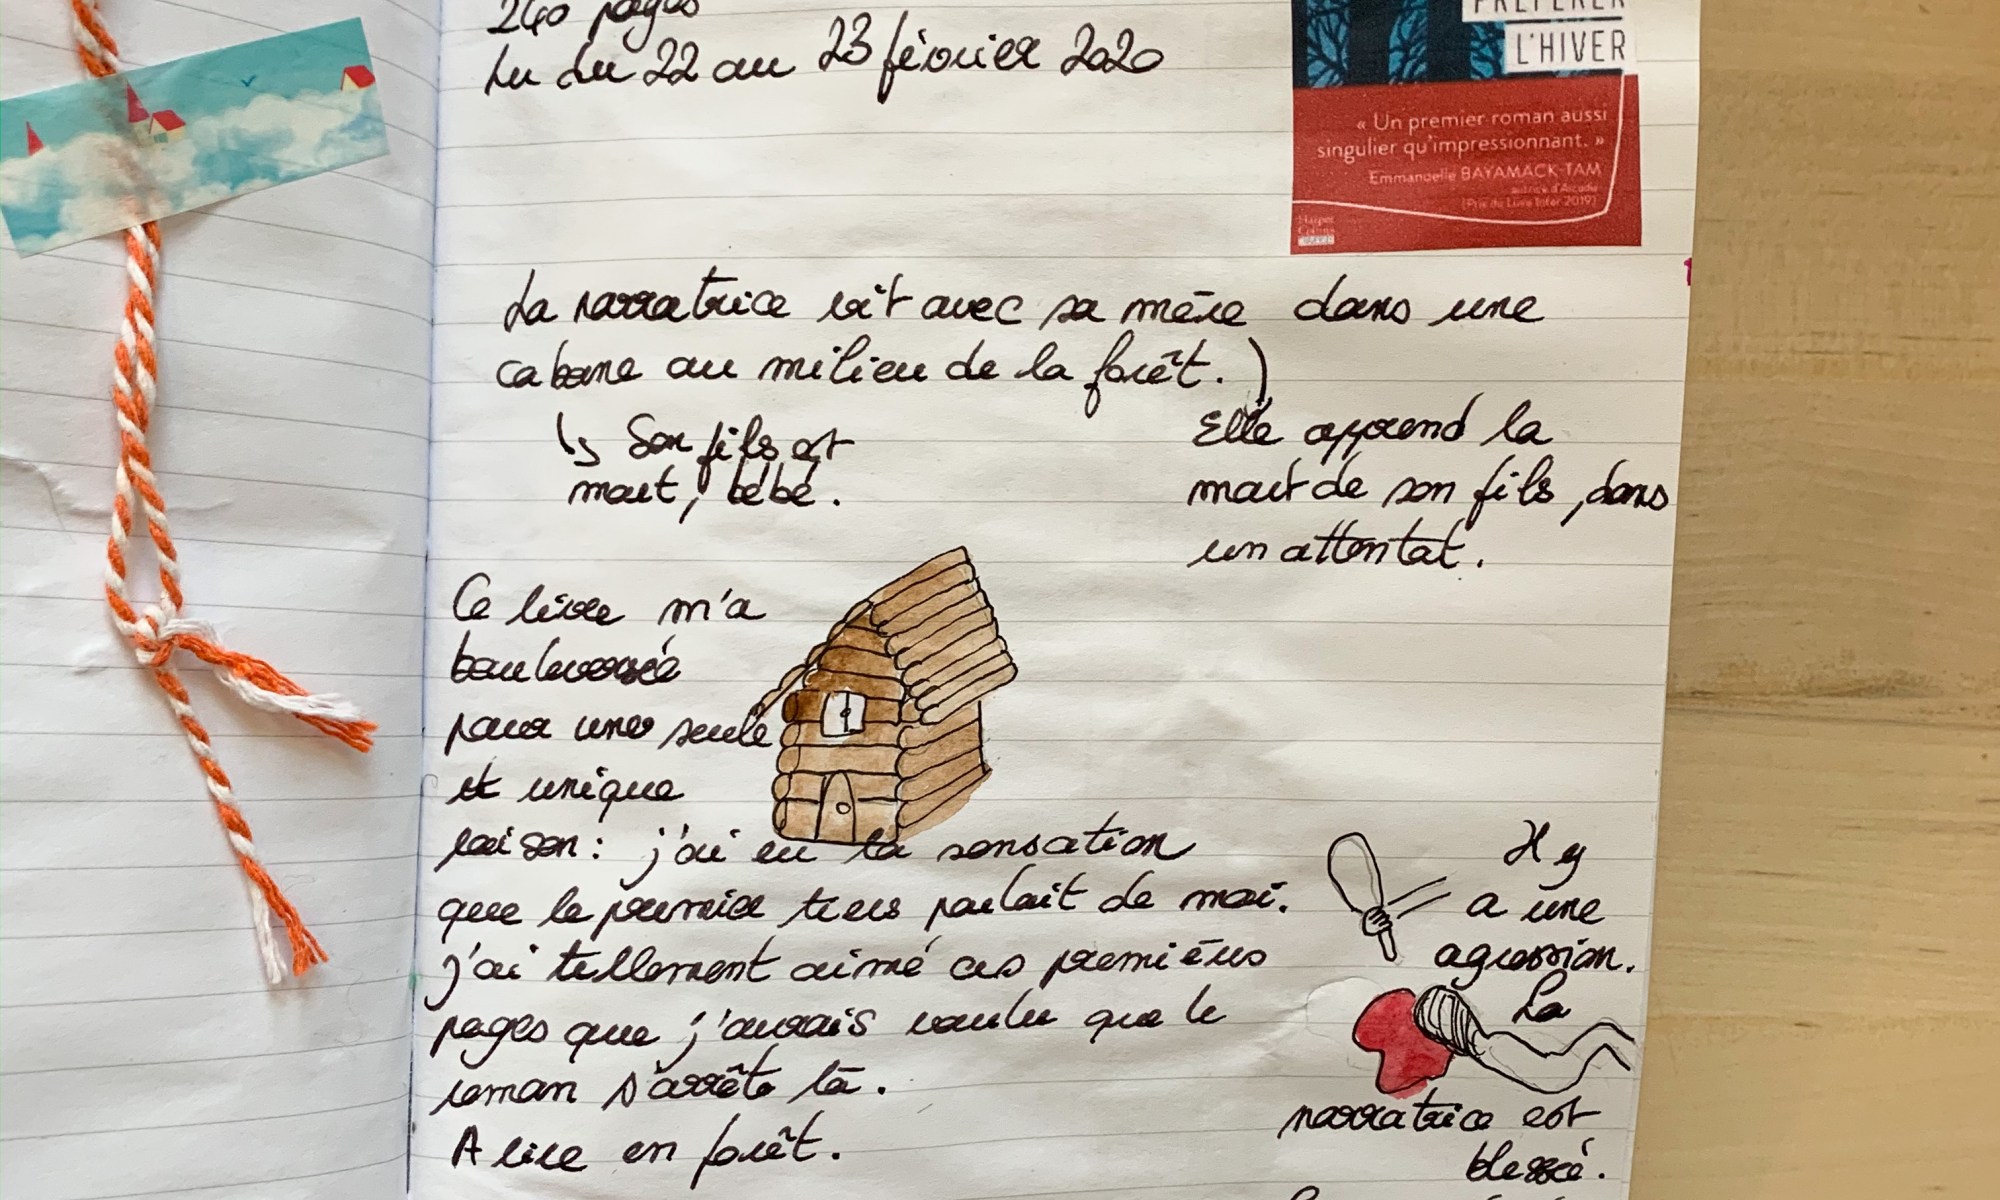 240 pages
Lu du 22 au 23 février 2020
PRÉFÉRER
L'HIVER
« Un premier roman aussi
singulier qu'impressionnant. »
Emmanuelle BAYAMACK-TAM
autrice d'Arcadie
(Prix du Livre Inter 2019)
Harper
Collins
La narratrice vit avec sa mère dans une
cabane au milieu de la forêt.)
↳ Son fils est
mort, bébé.
Elle apprend la
mort de son fils, dans
un attentat.
Ce livre m'a
bouleversée
pour une seule
et unique
raison : j'ai eu la sensation
que le premier tiers parlait de moi.
J'ai tellement aimé ces premières
pages que j'aurais voulu que le
roman s'arrête là.
A lire en forêt.
Il y
a une
agression.
La
narratrice est
blessé.